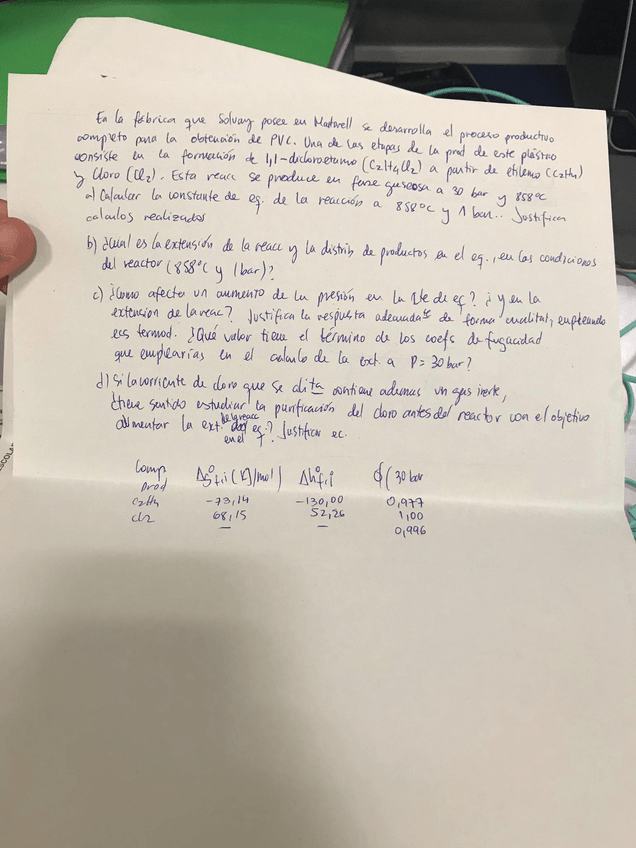 En la fábrica que Solvay posee en Martorell se desarrolla el proceso productivo
completo para la obtención de PVC. Una de las etapas de la prod de este plástico
consiste en la formación de 1,1-dicloroetano (C2H4Cl2) a partir de etileno (C2H4)
y Cloro (Cl2). Esta reacc se produce en fase gaseosa a 30 bar y 858ºC
a) Calcular la constante de eq. de la reacción a 858ºC y 1 bar.. Justifica
calculos realizados
b) ¿Cuál es la extensión de la reacc y la distrib de productos en el eq., en las condiciones
del reactor (858ºC y 1 bar)?
c) ¿Como afecta un aumento de la presión en la cte de eq? ¿y en la
extensión de la reac? Justifica la respuesta adecuada te de forma cualitat, empleando
ecs termod. ¿Qué valor tiene el término de los coefs de fugacidad
que emplearías en el calculo de la ext. a P=30 bar?
d) Si la corriente de cloro que se alita contiene ademas un gas inerte,
¿tiene sentido estudiar la purificación del cloro antes del reactor con el objetivo
aumentar la ext. de la reacc en el eq.? Justificar ec.
Comp Δg°f,i (KJ/mol) Δh°f,i ϕ(30 bar
prod -73,14 -130,00 0,977
C2H4 68,15 52,26 1,00
Cl2 — — 0,996